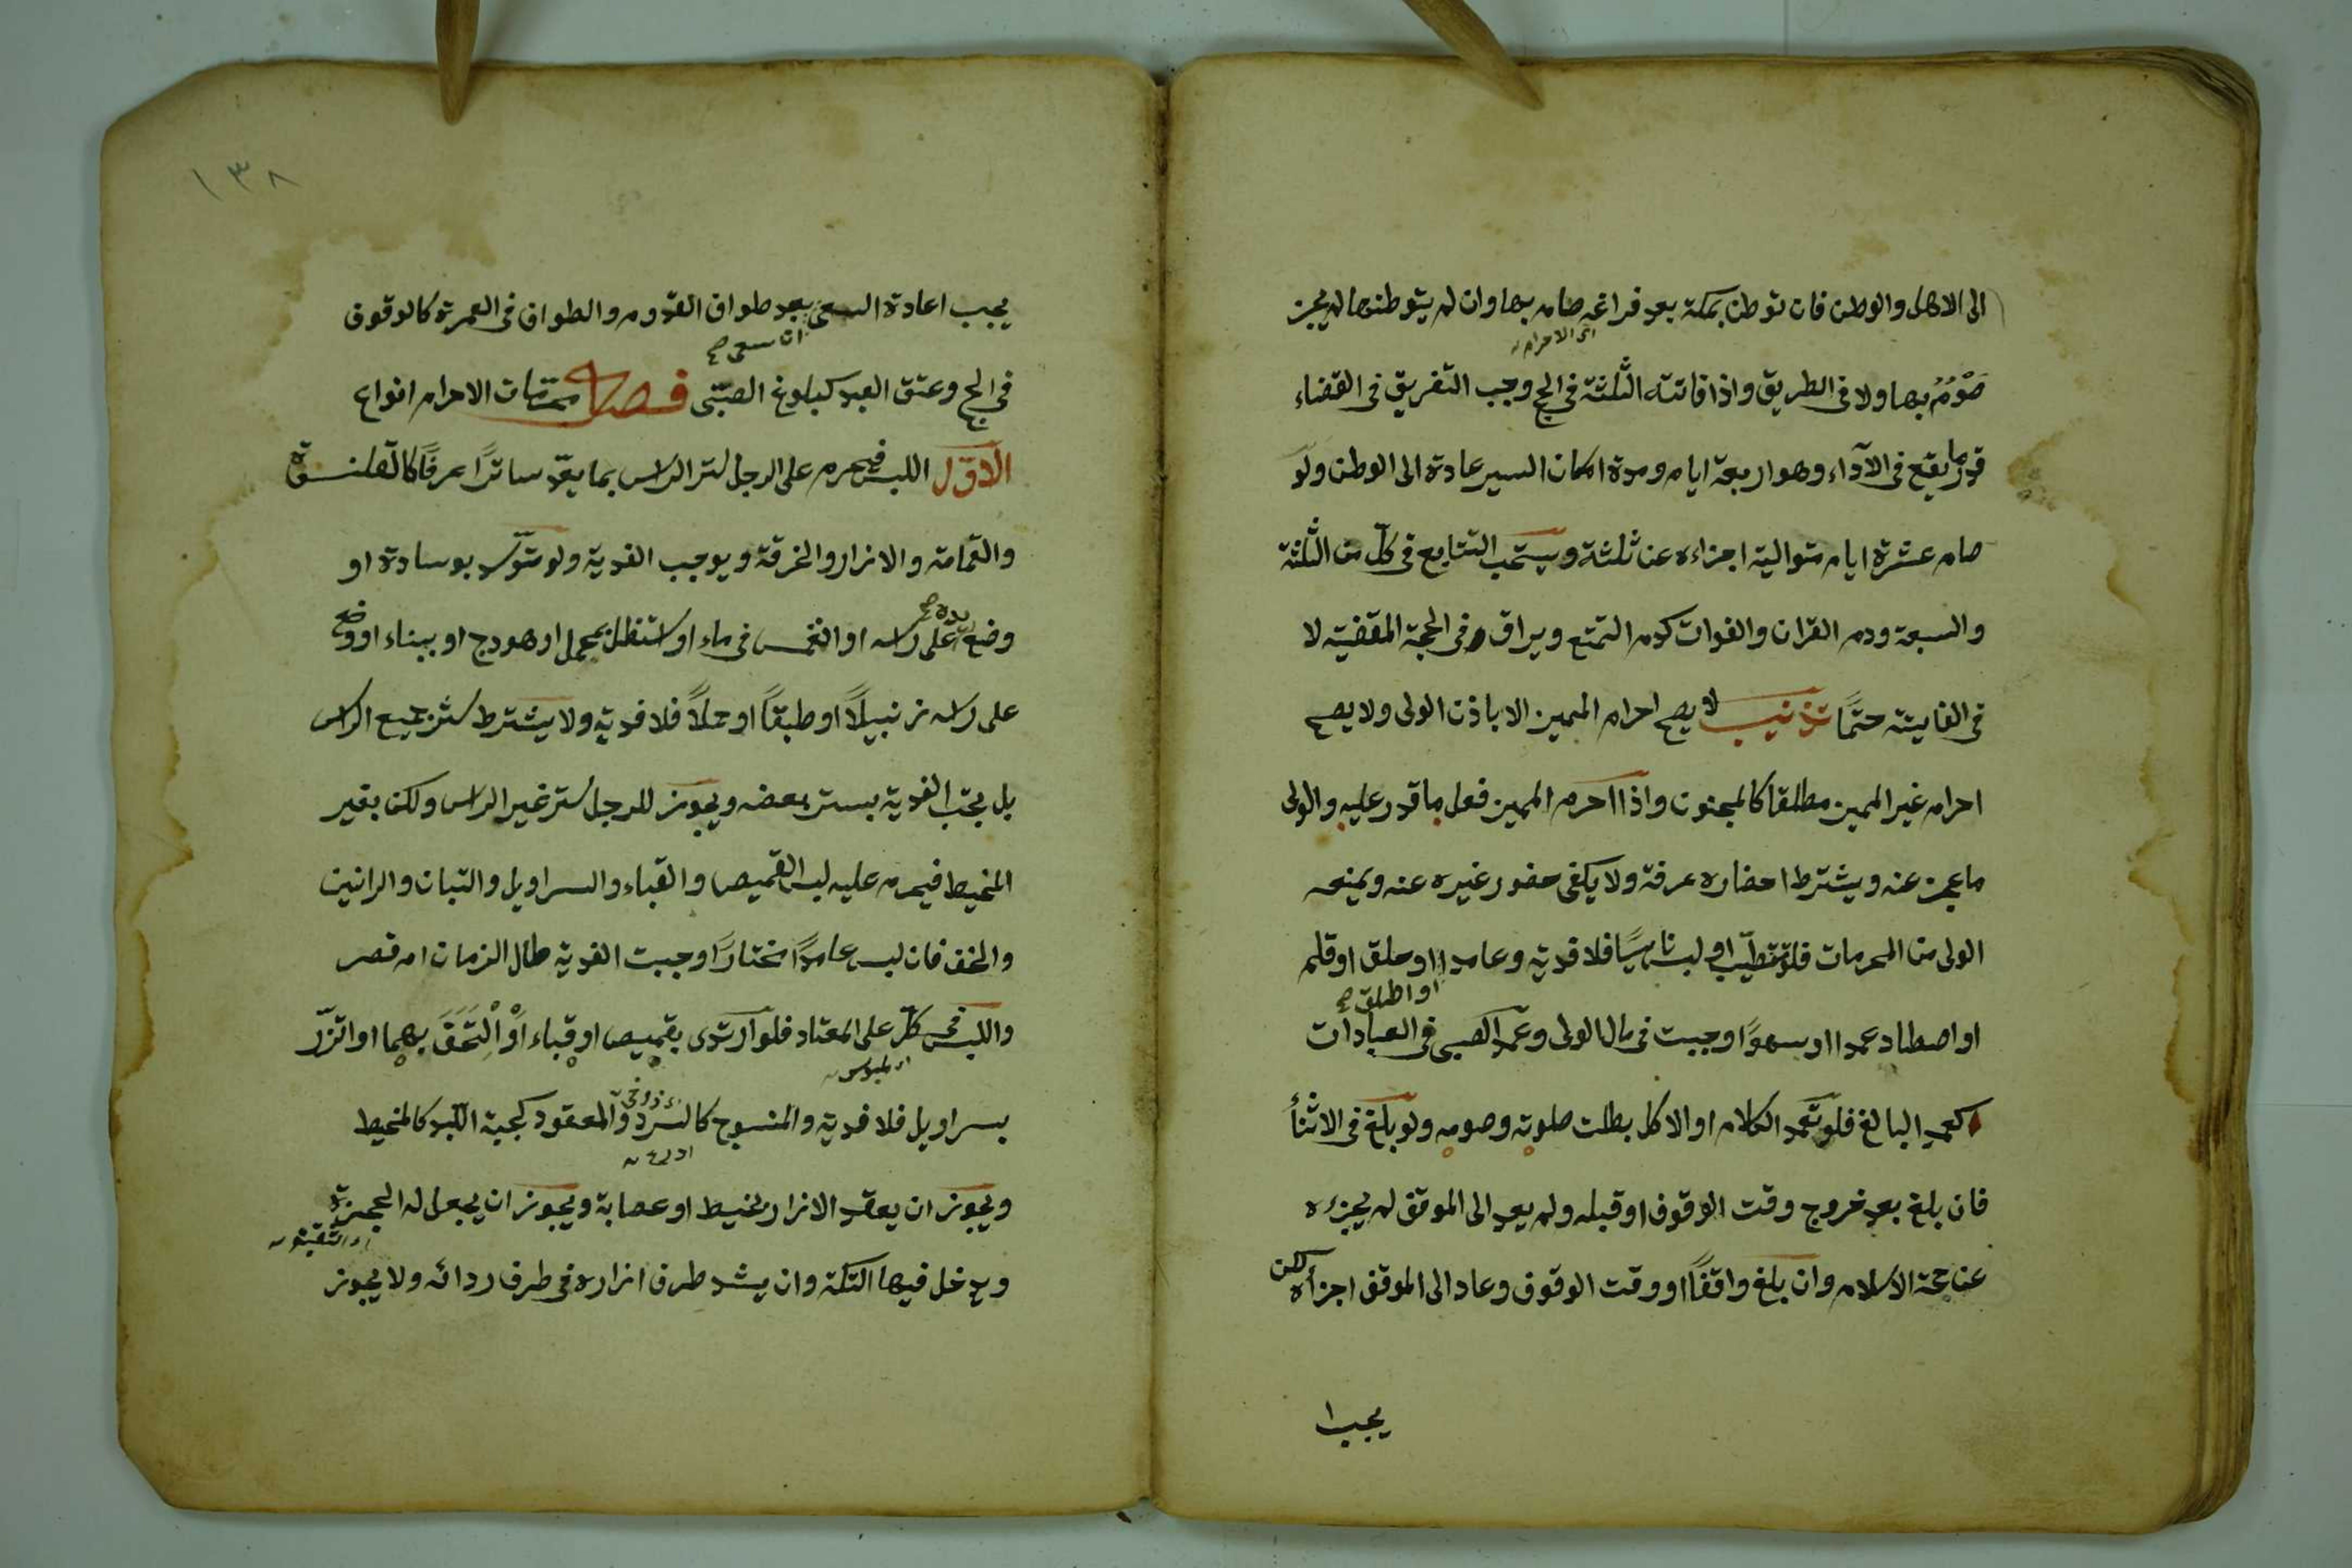 الى الاهل والوطن فان توطن بمكة بعد فراغه صام بها وان لم يتوطنها لم يجز
اى الاحرام
صومُه بها ولا فى الطريق واذا فاتته الثلثة فى الحج وجب التفريق فى القضاء
قدر ما يقع فى الآداء وهو اربعة ايام ومدة امكان السير عادة الى الوطن ولو
صام عشرة ايام متوالية اجزاءه عن ثلثة ويستحب التتابع فى كلّ من الثلثة
والسبعة ودم القران والفوات كدم التمتع ويراق فى الحجة المقضية لا
فى الفايتة حتمًا تذنيب لا يصح احرام المميز الا باذن الولى ولا يصح
احرام غير المميز مطلقا كالمجنون واذا احرم المميز فعل ما قدر عليه والولى
ما عجز عنه ويشترط احضاره عرفة ولا يكفى حضور غيره عنه ويمنعه
الولى من المحرمات فلو تطيّب او لبس ناسيًا فلا فدية وعامدا او حلق او قلم
او اطلق صح
او اصطاد عمدا او سهوًا وجبت فى مال الولى وعمد الصبى فى العبادات
كعمد البالغ فلو تعمد الكلام او الاكل بطلت صلوته وصومه ولو بلغ فى الاثنأ
فان بلغ بعد خروج وقت الوقوف او قبله ولم يعد الى الموقف لم يجزءه
عن حجة الاسلام وان بلغ واقفًا او وقت الوقوف وعاد الى الموقف اجزأه لكن
يجب ا
١٣٨
يجب اعادة السعى بعد طواف القدوم والطواف فى العمرة كالوقوف
ان سعى صح
فى الحج وعتق العبد كبلوغ الصبّى فصل محرمات الاحرام انواع
الاوّل اللبس فيحرم على الرجل ستر الراس بما يعدّ ساترًا عرفًا كالقلنسوة
والعمامة والازار والخرقة ويوجب الفدية ولو توسّد بوسادة او
وضع يده صح على راسه او انغمس فى ماء او استظل بمحمل او هودج او ببناء او وضع
على راسه زنبيلًا او طبقًا او حملًا فلا فدية ولا يشترط ستر جميع الراس
بل يجب الفدية بستر بعضه ويجوز للرجل ستر غير الراس ولكن بغير
المخيط فيحرم عليه لبس القميص والقباء والسراويل والتبان والرانين
والخف فان لبس عامدًا مختارًا وجبت الفدية طال الزمان ام قصر
واللبس فى كلّ على المعتاد فلو ارتدى بقميص او قباء اَوْ اْلْتَحَفَ بهما او اتزّر
اى ملبوس
بسراويل فلا فدية والمنسوج كالسرد والمعقود كجبة اللبد كالمخيط
ويجوز ان يعقد الازار بخيط او عصابة ويجوز ان يجعل له الحجزة
ويدخل فيها التكة وان يشد طرف ازاره فى طرف ردائه ولا يجوز